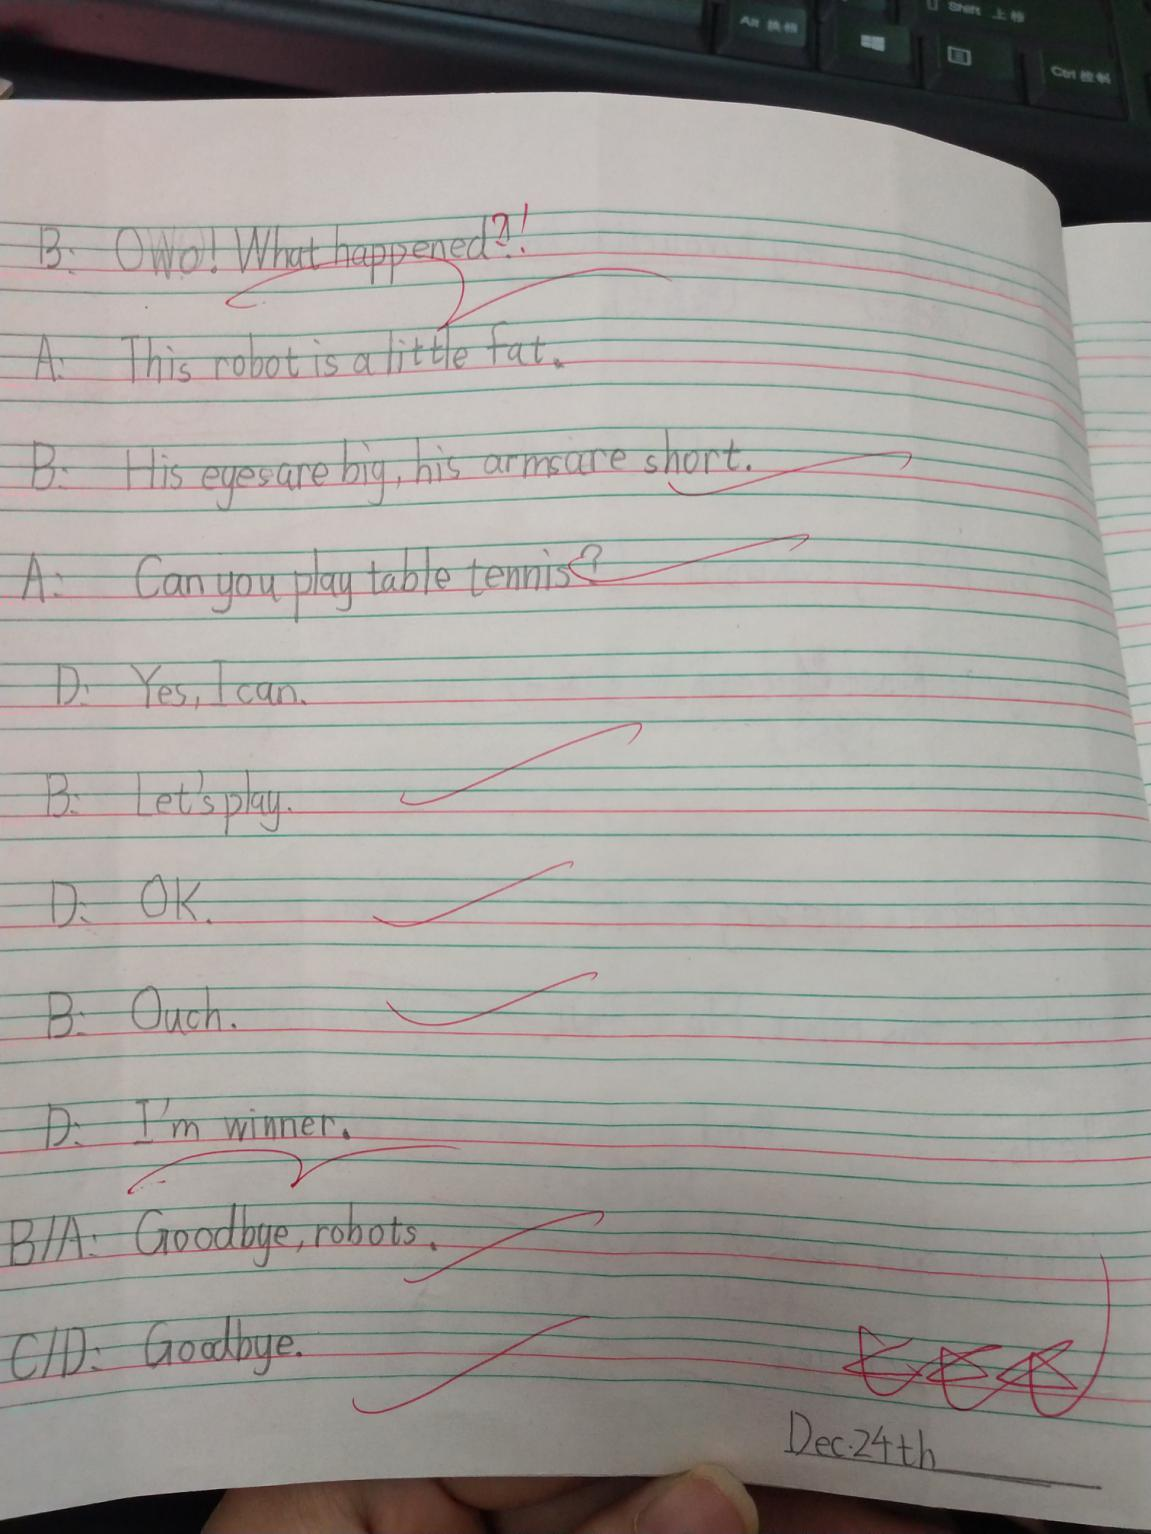 Alt 换档
Shift 上档
Ctrl 控制
B: OWo! What happened?!
A: This robot is a little fat.
B: His eyes are big, his arms are short.
A: Can you play table tennis?
D: Yes, I can.
B: Let's play.
D: OK.
B: Ouch.
D: I'm winner.
B/A: Goodbye, robots.
C/D: Goodbye.
Dec.24th